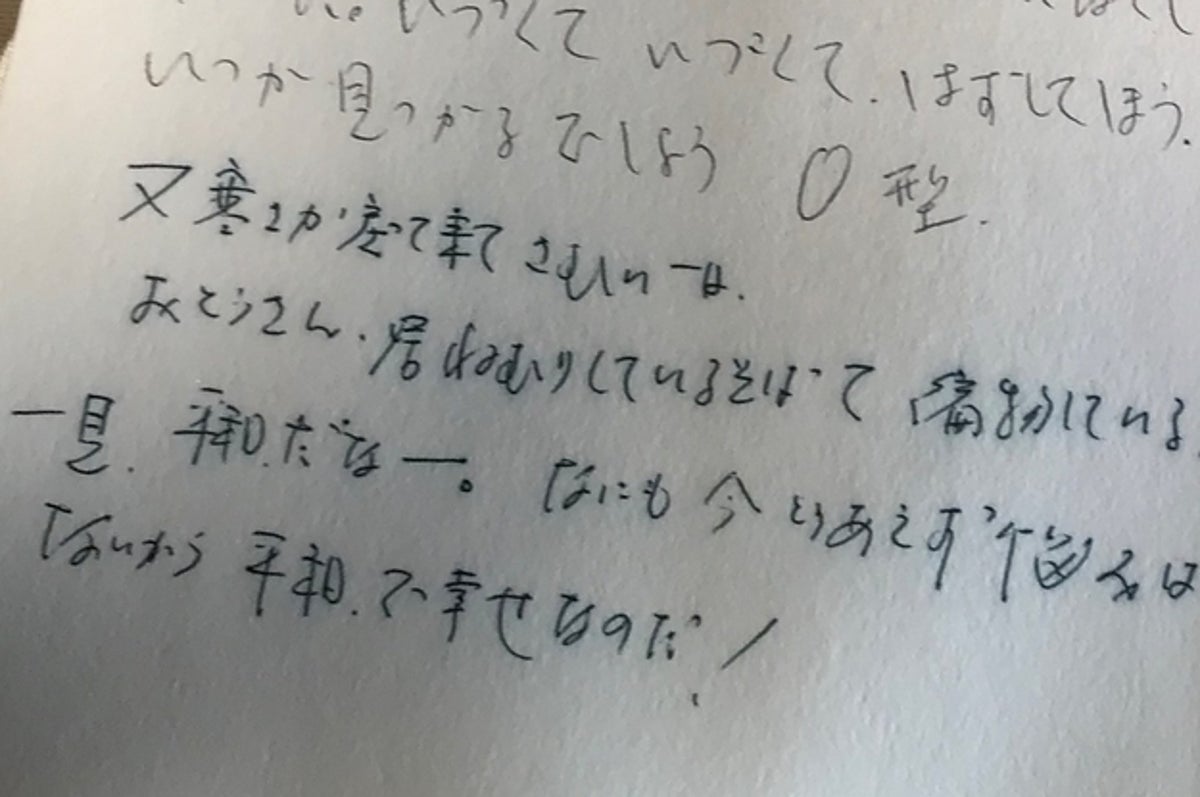 いづくて いづくて、はずしてほう、
いつか見つかるでしょう O型.
又寒さが戻って来てさむい一日.
おとうさん.居ねむりしているそばで している
一見.平和.だなー。なにも今とりあえず悩みは
ないから平和.で幸せなのだ!